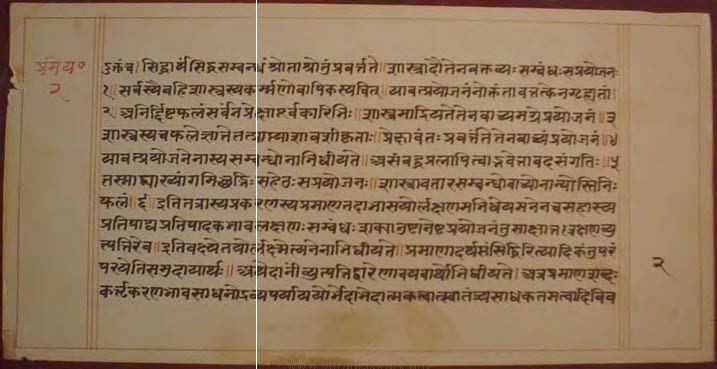 प्रमेय०
२
दुक्तंच। सिद्धार्थसिद्धसम्बन्धंश्रोताश्रोतुंप्रवर्त्तते॥शास्त्रादौतेनवक्तव्यःसम्बंधःसप्रयोजनः
१॥सर्वस्यैवहिशास्त्रस्यकर्म्मणोवापिकस्यचित्॥यावत्प्रयोजनंनोक्तंतावत्तत्केनगृह्यतां।
२॥अनिर्द्दिष्टफलंसर्वंनप्रेक्षापूर्वकारिभिः॥शास्त्रमाद्रियतेतेनवाच्यमग्रेप्रयोजनं॥३
शास्त्रस्यचफलेज्ञातेतत्प्राप्त्याशावशीकृताः॥प्रेक्षावंतःप्रवर्त्तंतेतेनवाच्यंप्रयोजनं॥४
यावत्प्रयोजनेनास्यसम्बन्धोनाभिधीयते॥असंबद्धप्रलापित्वाद्भवेत्तावदसंगतिः॥५
तस्माद्व्याख्यांगमिच्छद्भिःसहेतुःसप्रयोजनः॥शास्त्रावतारसम्बन्धोवाच्योनान्योस्तिनिः
फलं॥६॥इतितत्रास्यप्रकरणस्यप्रमाणतदाभासयोर्लक्षणमभिधेयमनेनचसहास्य
प्रतिपाद्यप्रतिपादकभावलक्षणःसंबंधःशक्यानुष्टानेष्टप्रयोजनंतुसाक्षात्तल्लक्षणव्यु
त्पत्तिरेव॥इतिवक्ष्येतयोर्लक्ष्मेत्यनेनाभिधीयते॥प्रमाणादर्थसंसिद्धिरित्यादिकंतुपरं
परयेतिसमुदायार्थः॥अथेदानींव्युत्पत्तिद्वारेणावयवार्थोभिधीयते।अत्रप्रमाणशब्दः
कर्त्तृकरणभावसाधनोद्रव्यपर्याययोर्भेदाभेदात्मकत्वात्स्वातंत्र्यसाधकतमत्वादिविव
२